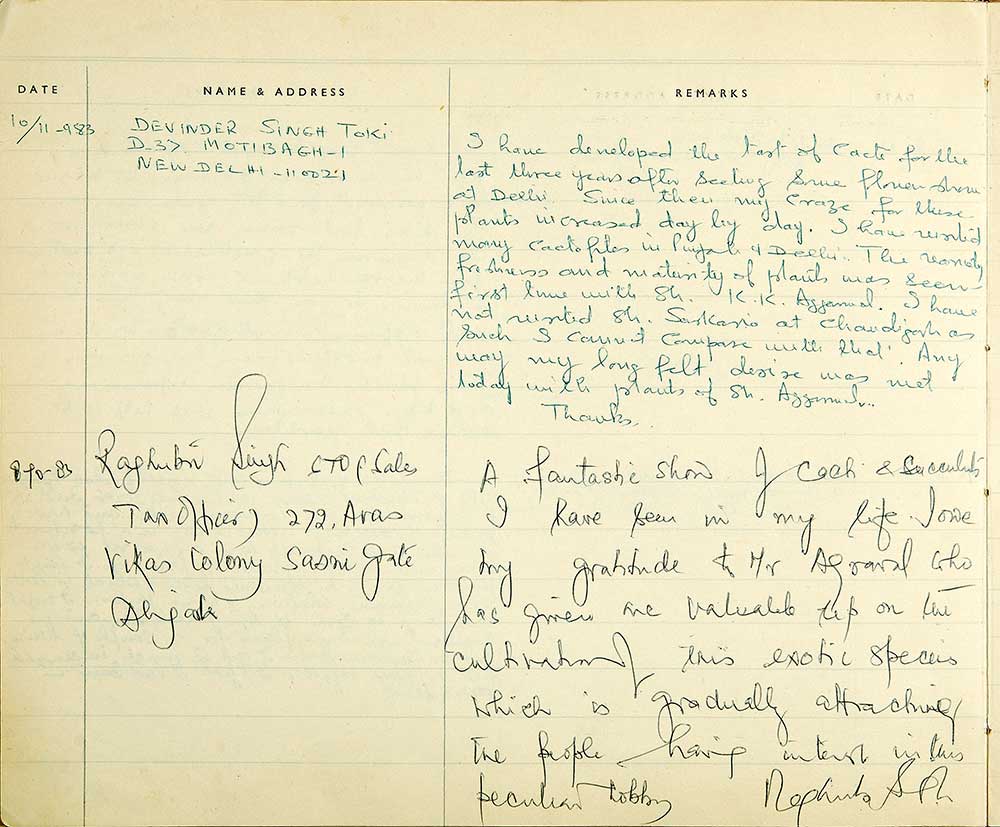 DATE NAME & ADDRESS REMARKS
10/11-983 DEVINDER SINGH TOKI
D-37 MOTIBAGH-1
NEW DELHI-110021
I have developed the tast of Cacte for the
last three years after seeing some flower show
at Delhi. Since then my craze for these
plants increased day by day. I have visited
many cactofiles in Punjab & Delhi. The
freshness and maturity of plants was seen
first time with Sh. K.K. Aggarwal. I have
not visited Sh. at Chandigarh as
such I cannot compare with that. Any
way my long felt desire was met
today with plants of Sh. Aggarwal..
Thanks.
Raghubir Singh CTO (Sales
Tax Officer) 272, Avas
Vikas Colony Sasni Gate
A fantastic show of & Succulents
I have seen in my life. I owe
my gratitude to Mr Agrawal who
has given me valuable tip on the
cultivation of this exotic species
which is gradually attracting
the people having interest in this
peculiar hobby